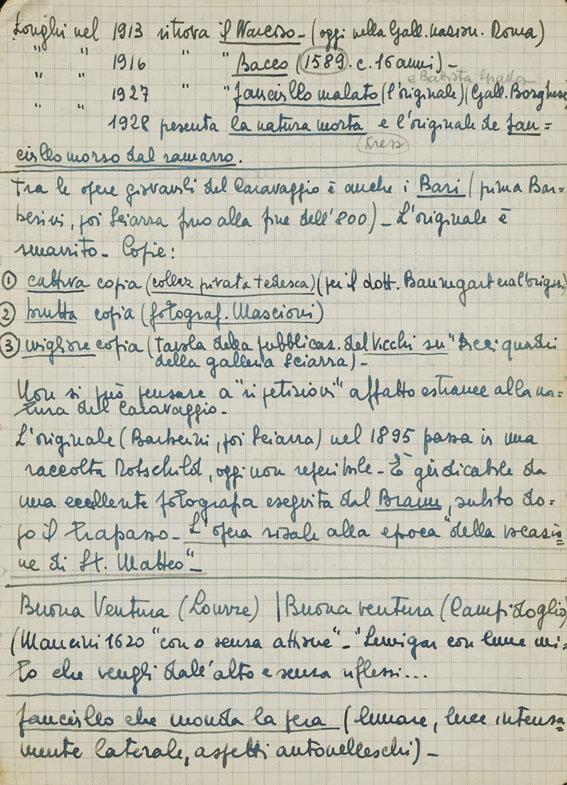 Longhi nel 1913 ritrova il Narciso - (oggi nella Gall. nazion. Roma)
" " 1916 " " Bacco (1589 c. 16 anni) -
e Battista
" " 1927 " " fanciullo malato (l'originale) (Gall. Borghese
1928 presenta la natura morta e l'originale de fan=
ciullo morso dal ramarro.
Tra le opere giovanili del Caravaggio è anche i Bari (prima Bar=
berini, poi Sciarra fino alla fine dell'800) - L'originale è
smarrito - Copie:
① cattiva copia (collez. privata tedesca) (per il dott. Baumgart era l'origin.)
② brutta copia (fotograf. Mascioni)
③ migliore copia (tavola della pubblicaz. del Vicchi su "Dieci quadri
della galleria Sciarra) -
Non si può pensare a "ripetizioni" affatto estranee alla na=
tura del Caravaggio -
L'originale (Barberini, poi Sciarra) nel 1895 passa in una
raccolta Rotschild, oggi non reperibile - È giudicabile da
una eccellente fotografia eseguita dal Braun, subito do=
po il trapasso - L'opera risale alla epoca "della vocazio=
ne di St. Matteo" -
Buona Ventura (Louvre) | Buona ventura (Campidoglio)
(Mancini 1620 "con o senza attione" - "Lumigar con lume uni=
to che venghi dall'alto e senza riflessi...
fanciullo che monda la pera (lunare, luce intensa=
mente laterale, aspetti antonelleschi) -